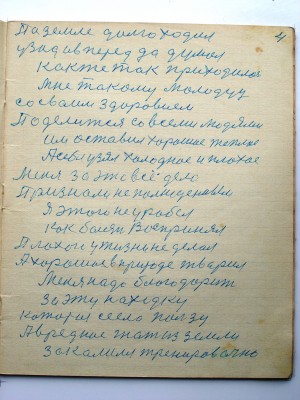 4
По земле долго ходил
узад и вперед да думал
Как же так приходился
Мне такому молодцу
со своим здоровием
Поделится со всеми людями
им оставил хорошие теплые
А себе узял холодное и плохое
Меня за это все дело
Признали не полноценным
Я этого не уробел
как боям воспринял
Плохого у жизни не делал
А хорошое в природе тварил
Меня надо благодарит
За эту находку
которая сеело пользу
А вредное гнат из земли
Закалили тренировачно